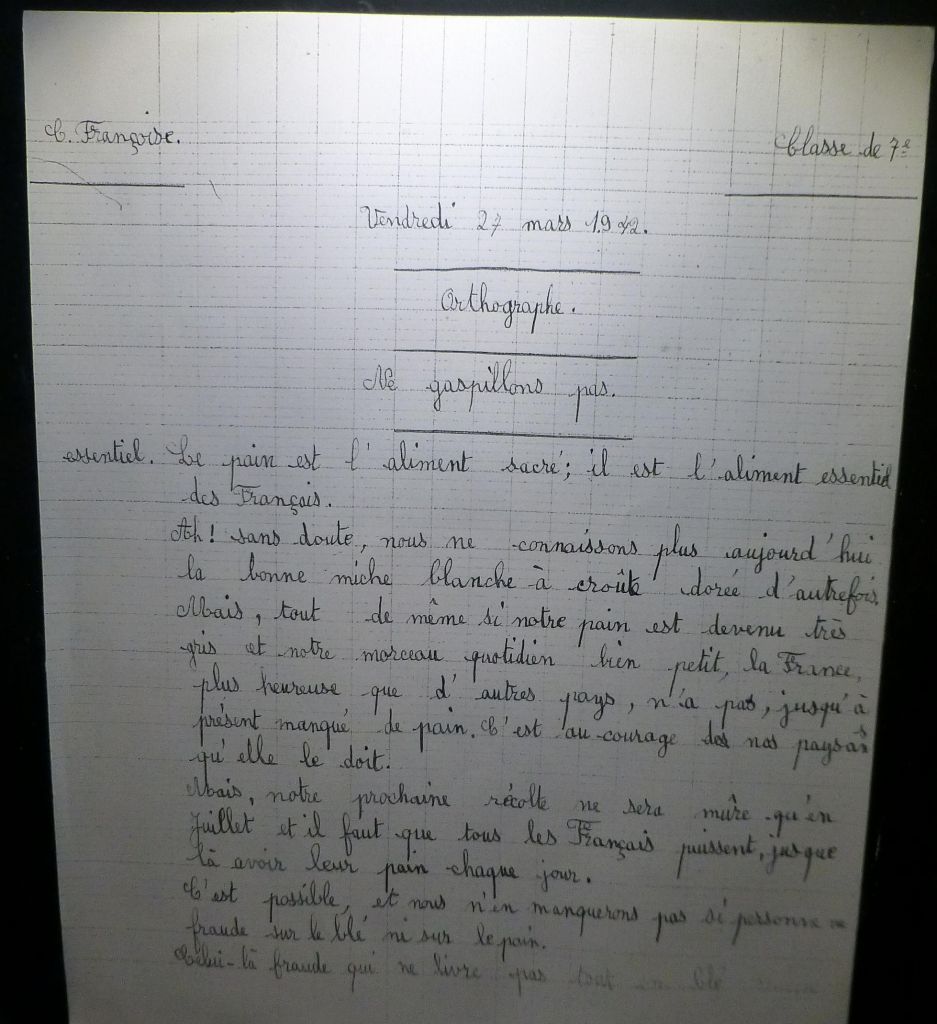 C. Françoise.
Classe de 7e
Vendredi 27 mars 1942.
Orthographe.
Ne gaspillons pas.
essentiel. Le pain est l'aliment sacré; il est l'aliment essentiel
des Français.
Ah! sans doute, nous ne connaissons plus aujourd'hui
la bonne miche blanche à croûte dorée d'autrefois.
Mais, tout de même si notre pain est devenu très
gris et notre morceau quotidien bien petit, la France,
plus heureuse que d'autres pays, n'a pas, jusqu'à
présent manqué de pain. C'est au courage des nos paysans
qu'elle le doit.
Mais, notre prochaine récolte ne sera mûre qu'en
Juillet et il faut que tous les Français puissent, jusque
là avoir leur pain chaque jour.
C'est possible, et nous n'en manquerons pas si personne ne
fraude sur le blé ni sur le pain.
Celui-là fraude qui ne livre pas tout blé